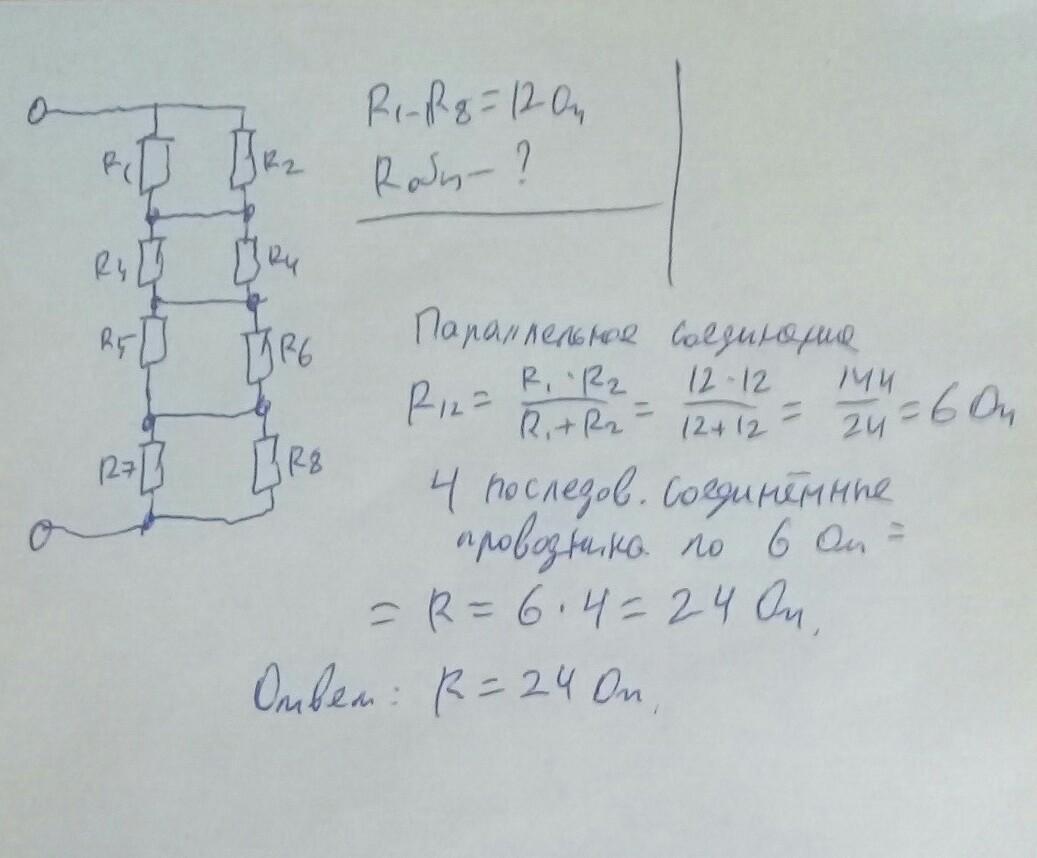 R1-R8=12 Ом
Rобщ - ?
R1 R2
R3 R4
R5 R6
R7 R8
Параллельное соединение
R12 = R1 · R2 / R1 + R2 = 12 · 12 / 12+12 = 144 / 24 = 6 Ом
4 послeдов. соединённые
проводника по 6 Ом =
= R = 6 · 4 = 24 Ом.
Ответ: R = 24 Ом.